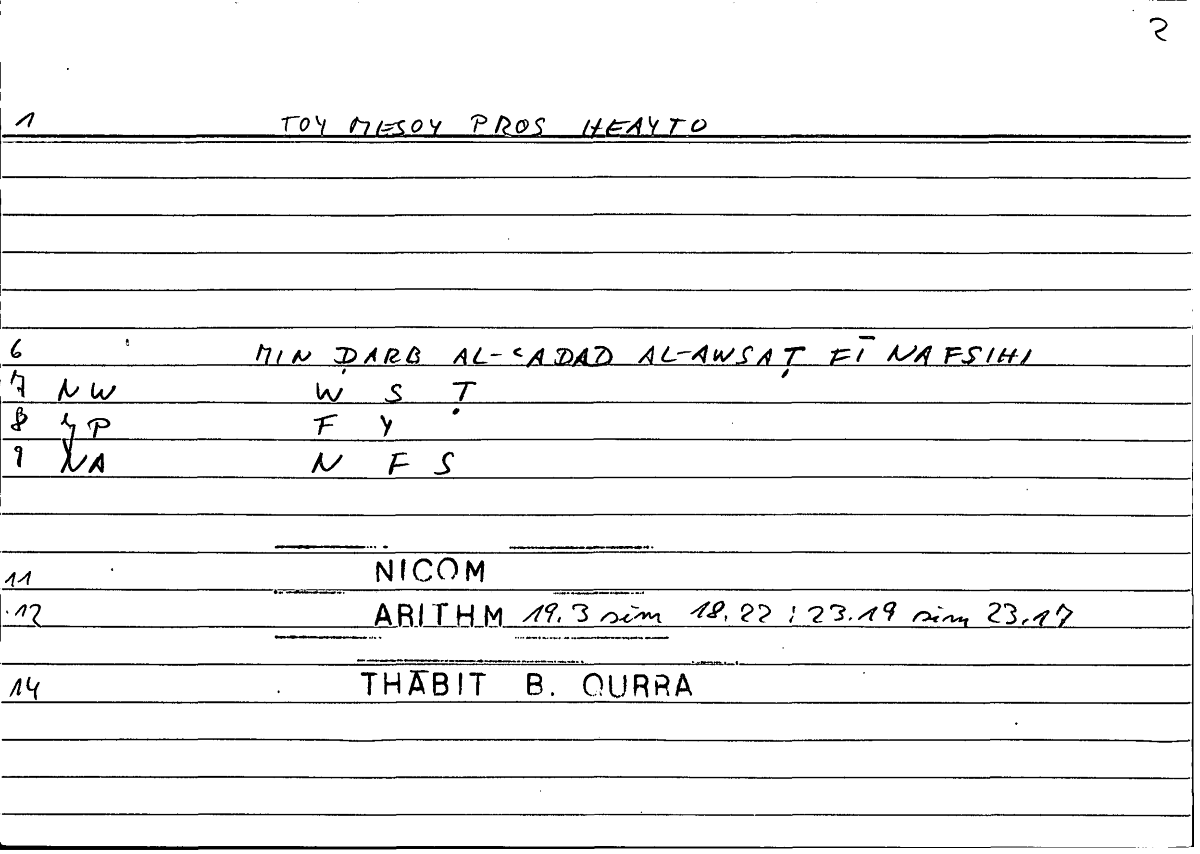 2
1 TOY MESOY PROS HEAYTO
6 MIN ḌARB AL-ʿADAD AL-AWSAṬ FĪ NAFSIHI
7 NW W S Ṭ
8 YP F Y
9 NA N F S
11 NICOM
12 ARITHM 19.3 sim 18.22 ; 23.19 sim 23.17
14 THĀBIT B. QURRA